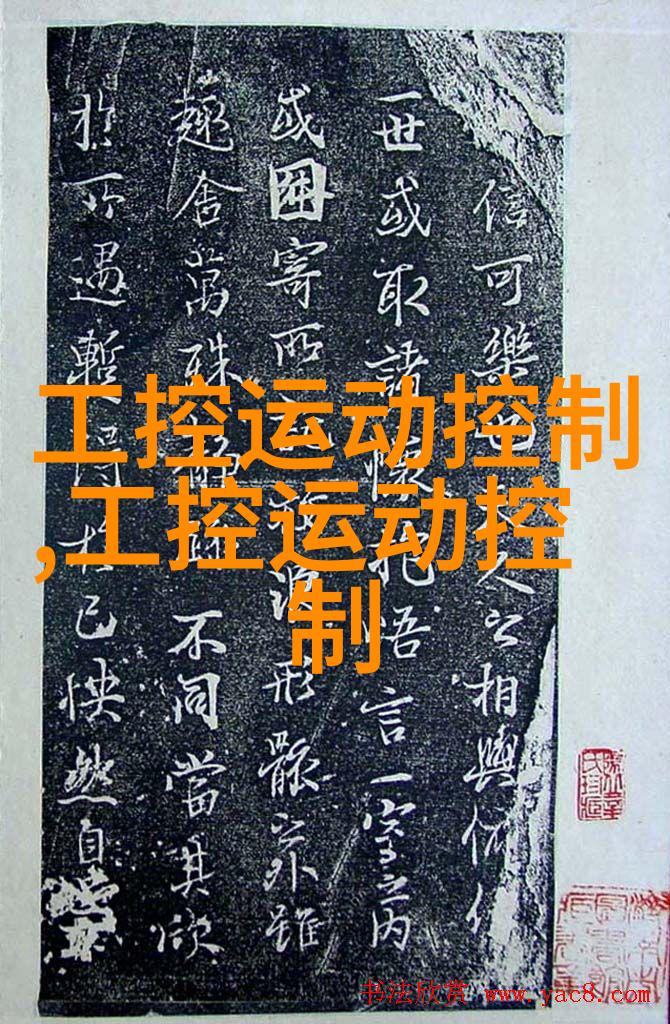 信可樂也人之相與俯仰
一世或取諸懷抱悟言一室之內
或因寄所放浪形骸之外雖
趣舍萬殊靜不同當其欣
於所遇暫得於己怏然自
工控运动控制
,工控运动控
制
书法欣赏 www.yac8.com